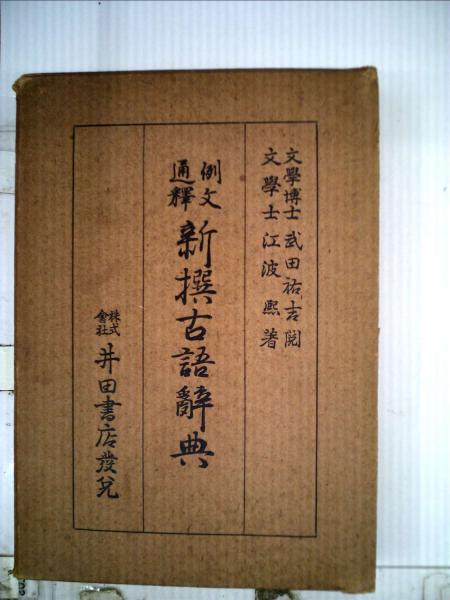 文學博士 武田祐吉閲
文學士 江波熙著
例文
通釋
新撰古語辭典
株式
會社
井田書店發兌